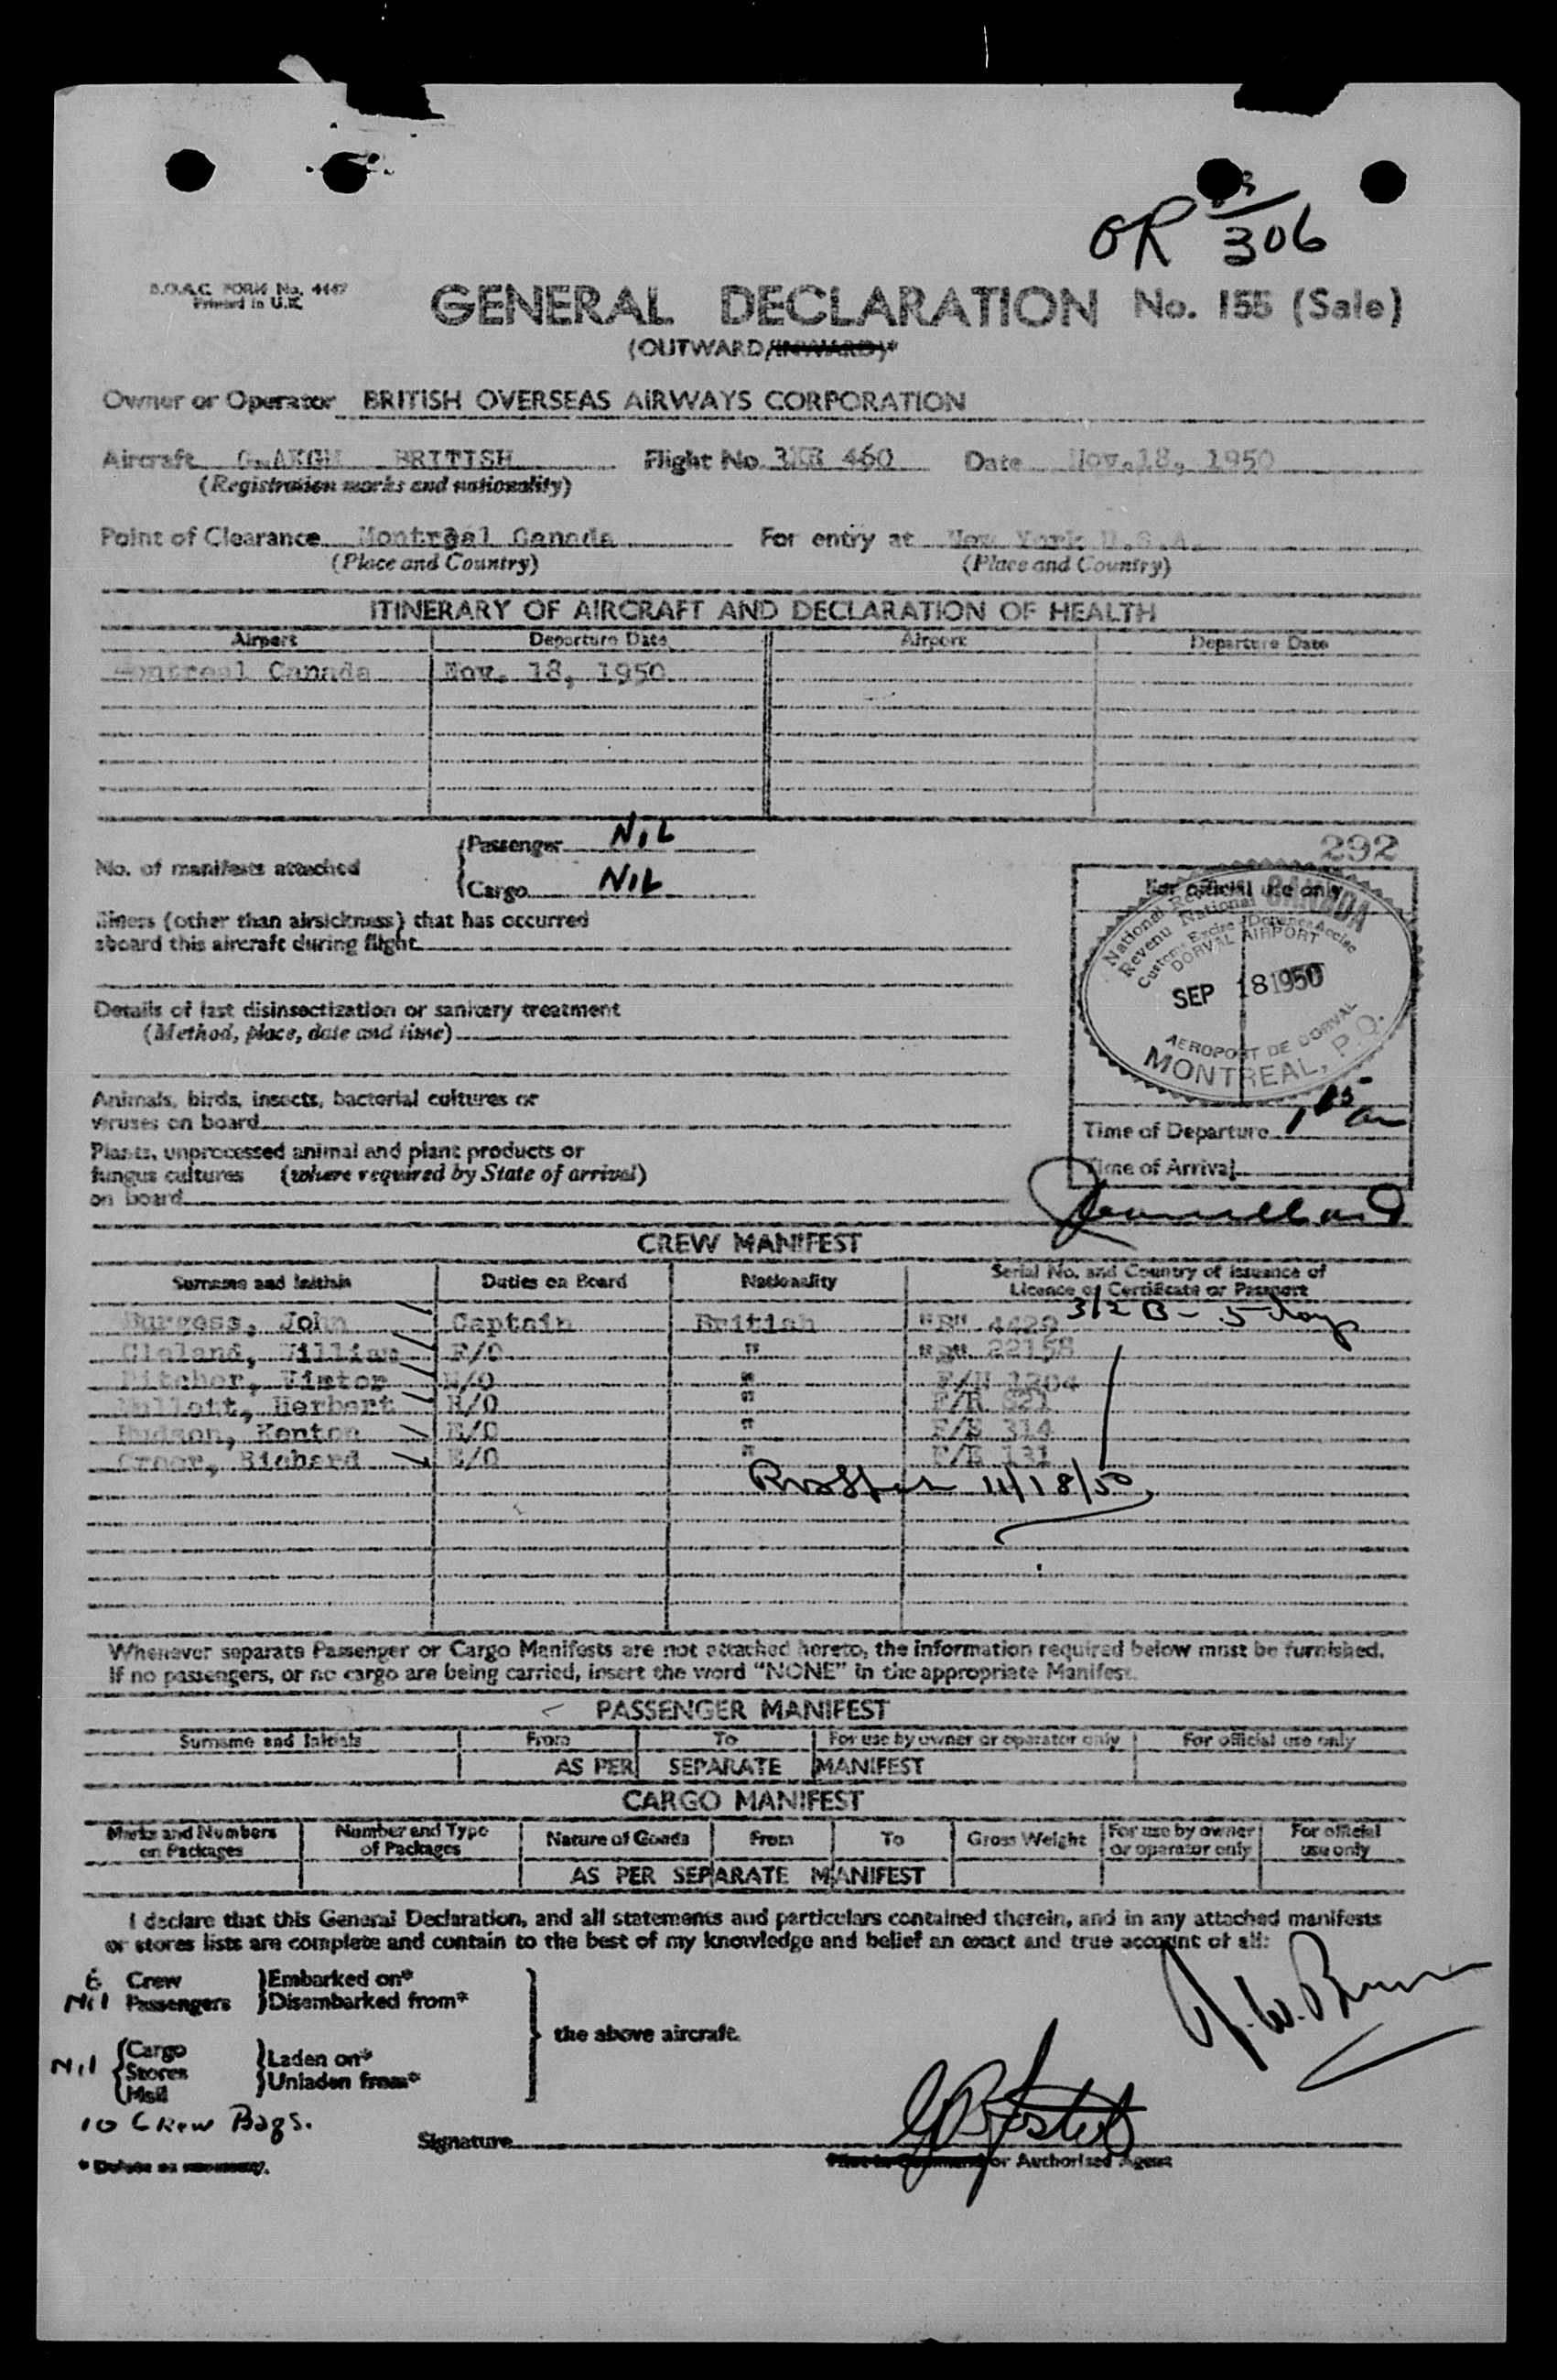 OR 306
B.O.A.C. FORM No. 4447
Printed in U.K.
GENERAL DECLARATION No. 155 (Sale)
(OUTWARD/INWARD)*
Owner or Operator BRITISH OVERSEAS AIRWAYS CORPORATION
Aircraft BRITISH Flight No. 460 Date Nov.18, 1950
(Registration marks and nationality)
Point of Clearance Montreal Canada For entry at New York U.S.A.
(Place and Country) (Place and Country)
ITINERARY OF AIRCRAFT AND DECLARATION OF HEALTH
Airport Departure Date Airport Departure Date
Montreal Canada Nov. 18, 1950
No. of manifests attached
Passenger NIL
Cargo NIL
292
For official use only
Illness (other than airsickness) that has occurred
aboard this aircraft during flight
National Revenue CANADA
Revenu National
Customs Excise Douanes Accise
DORVAL AIRPORT
SEP 18 1950
AEROPORT DE DORVAL
MONTREAL, P.Q.
Details of last disinsectization or sanitary treatment
(Method, place, date and time)
Animals, birds, insects, bacterial cultures or
viruses on board
Time of Departure
Plants, unprocessed animal and plant products or
fungus cultures (where required by State of arrival)
on board
Time of Arrival
CREW MANIFEST
Surname and Initials Duties on Board Nationality Serial No. and Country of Issuance of
Licence or Certificate or Passport
312 B - 5 days
Burgess, John Captain British "B" 4429
Cleland, William F/O " "B" 22158
Pitcher, N/O " F/N 1204
Herbert R/O " F/R 821
Hudson, Kenton E/O " F/E 314
Richard E/O " F/E 131
11/18/50
Whenever separate Passenger or Cargo Manifests are not attached hereto, the information required below must be furnished.
If no passengers, or no cargo are being carried, insert the word "NONE" in the appropriate Manifest.
PASSENGER MANIFEST
Surname and Initials From To For use by owner or operator only For official use only
AS PER SEPARATE MANIFEST
CARGO MANIFEST
Marks and Numbers on Packages Number and Type of Packages Nature of Goods From To Gross Weight For use by owner or operator only For official use only
AS PER SEPARATE MANIFEST
I declare that this General Declaration, and all statements and particulars contained therein, and in any attached manifests
or stores lists are complete and contain to the best of my knowledge and belief an exact and true account of all:
6 Crew Embarked on*
Nil Passengers Disembarked from*
the above aircraft.
Nil Cargo Stores Mail
Laden on*
Unladen from*
10 Crew Bags.
Signature
Pilot in Command or Authorised Agent
* Delete as necessary.